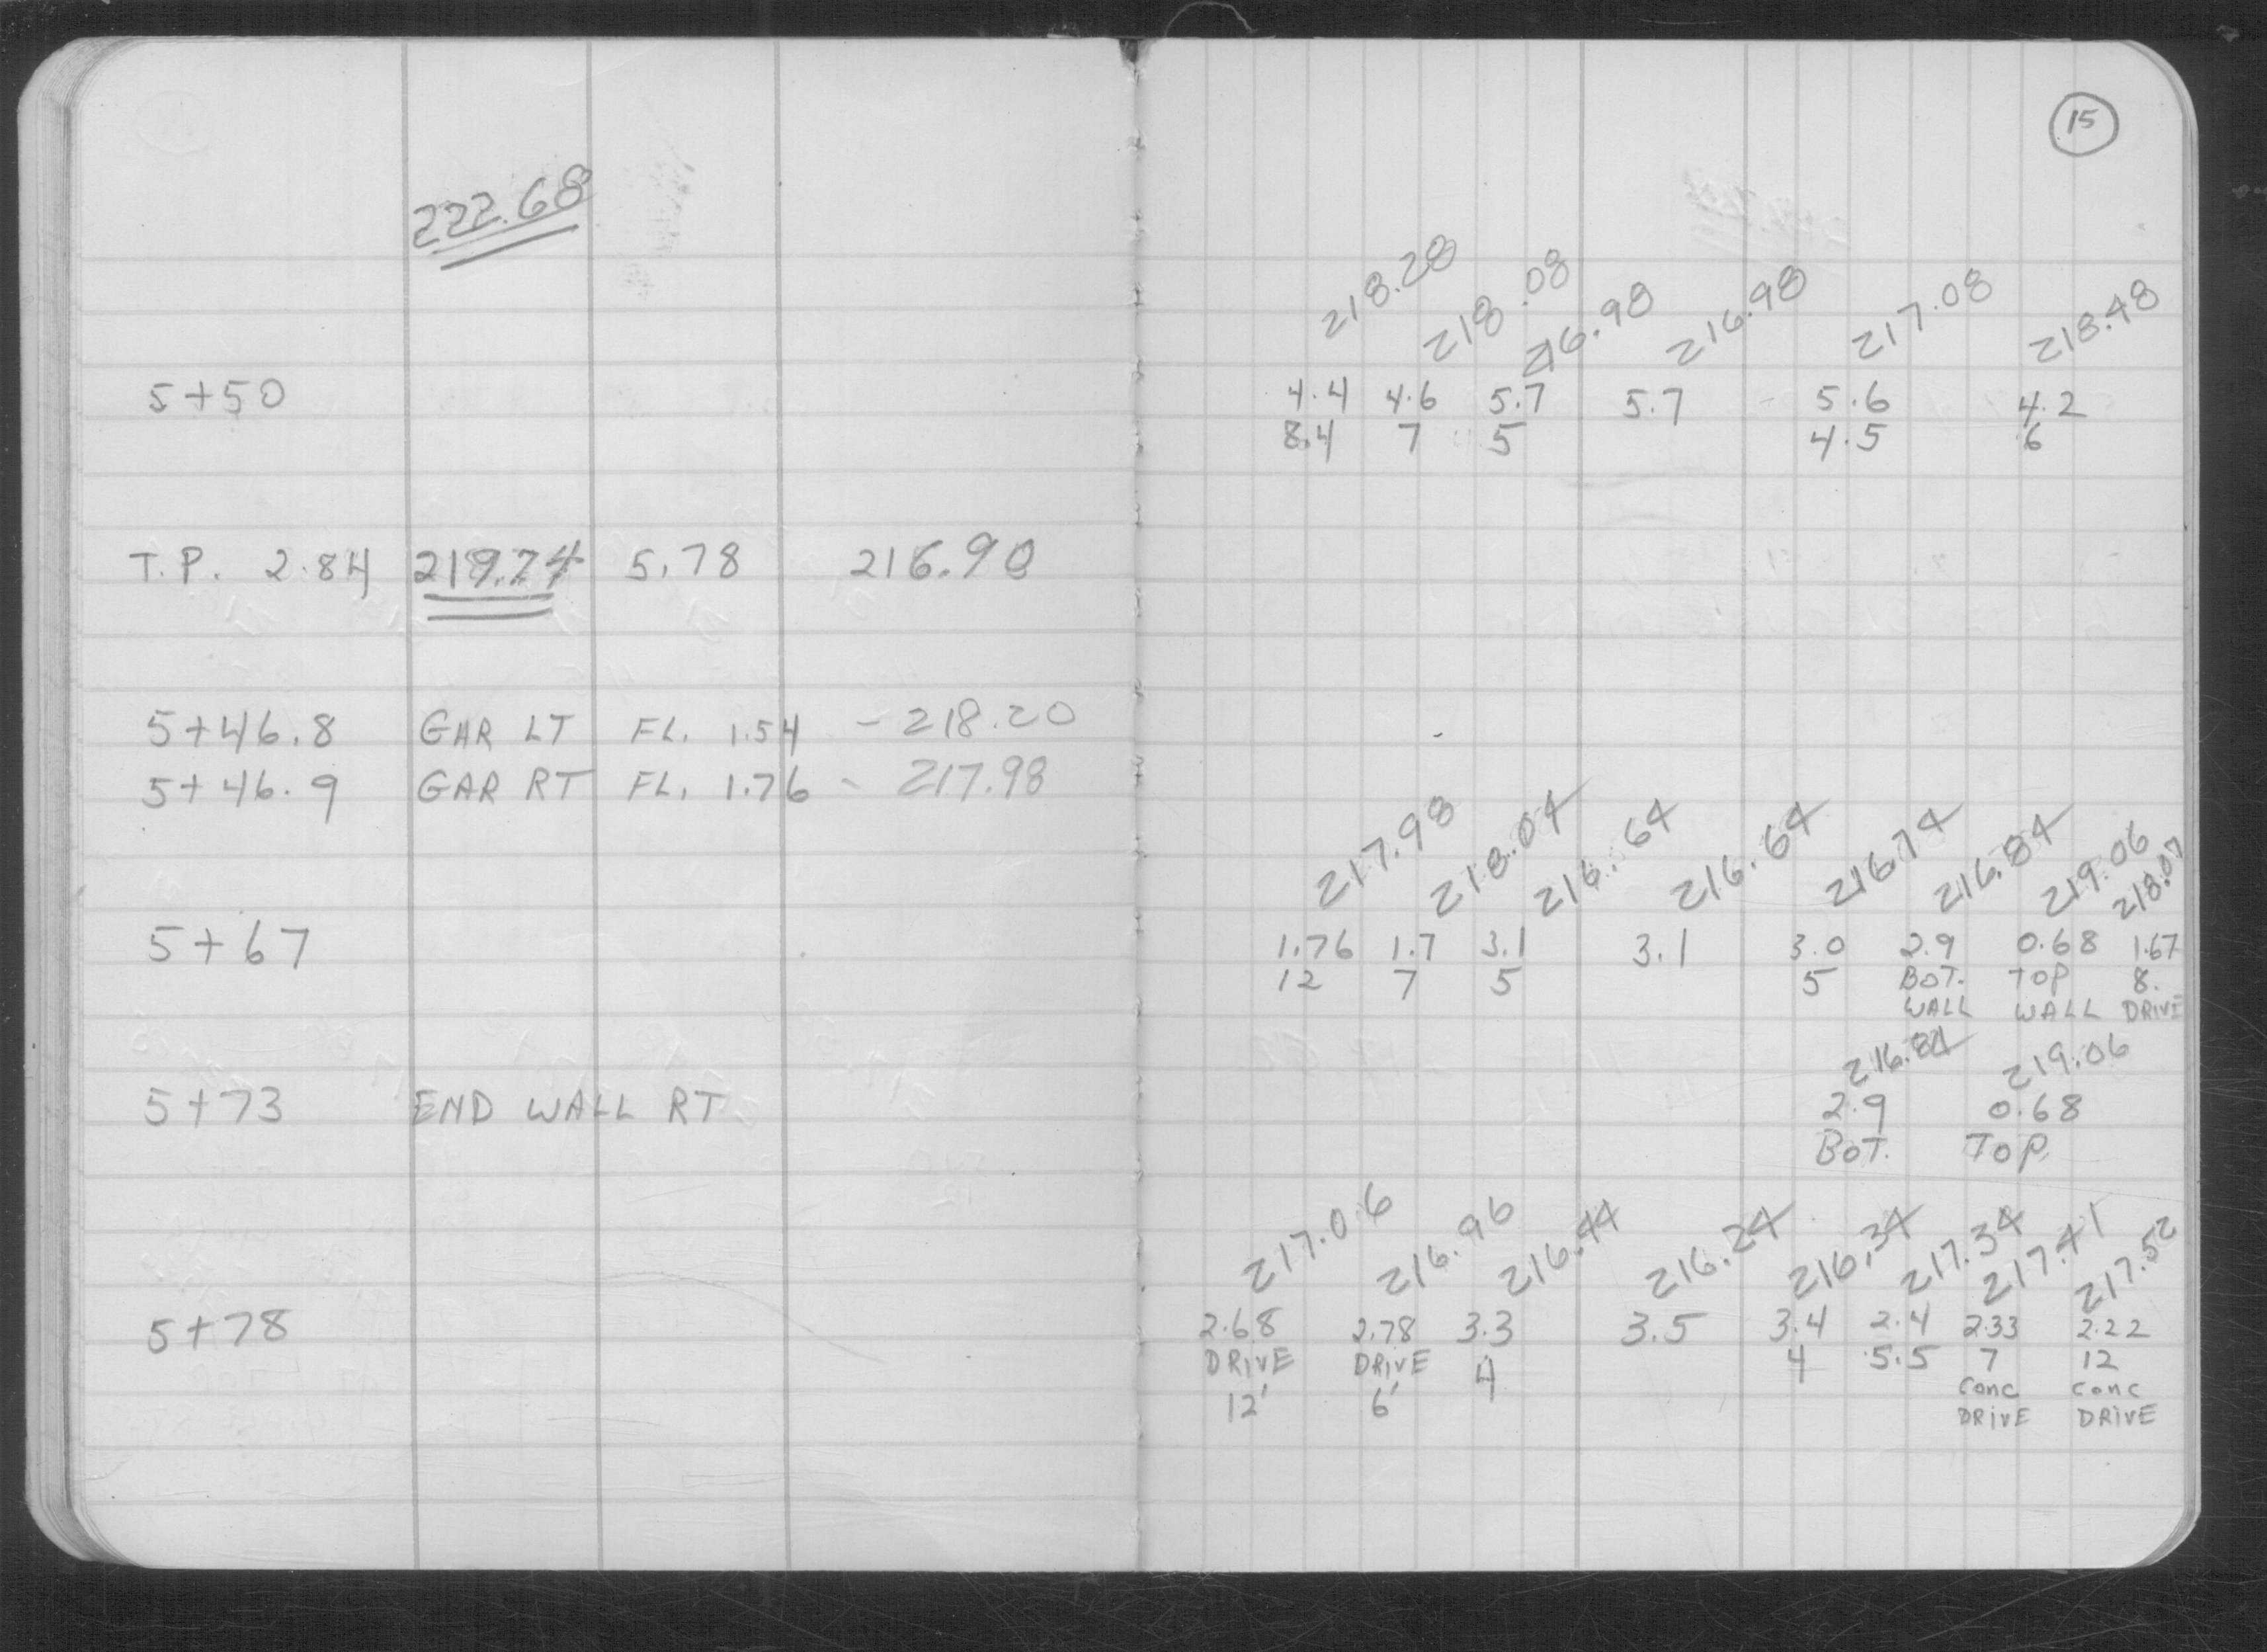 15
222.68
218.28 218.08 216.98 216.98 217.08 218.48
5+50 4.4 4.6 5.7 5.7 5.6 4.2
8.4 7 5 4.5 6
T.P. 2.84 219.74 5.78 216.90
5+46.8 GAR LT FL. 1.54 - 218.20
5+46.9 GAR RT FL. 1.76 - 217.98
217.98 218.04 216.64 216.64 216.74 216.84 219.06 218.07
5+67 1.76 1.7 3.1 3.1 3.0 2.9 0.68 1.67
12 7 5 5 BOT. TOP 8.
WALL WALL DRIVE
216.84 219.06
5+73 END WALL RT 2.9 0.68
BOT. TOP
217.06 216.96 216.44 216.24 216.34 217.34 217.41 217.52
5+78 2.68 2.78 3.3 3.5 3.4 2.4 2.33 2.22
DRIVE DRIVE 4 4 5.5 7 12
12' 6' CONC CONC
DRIVE DRIVE